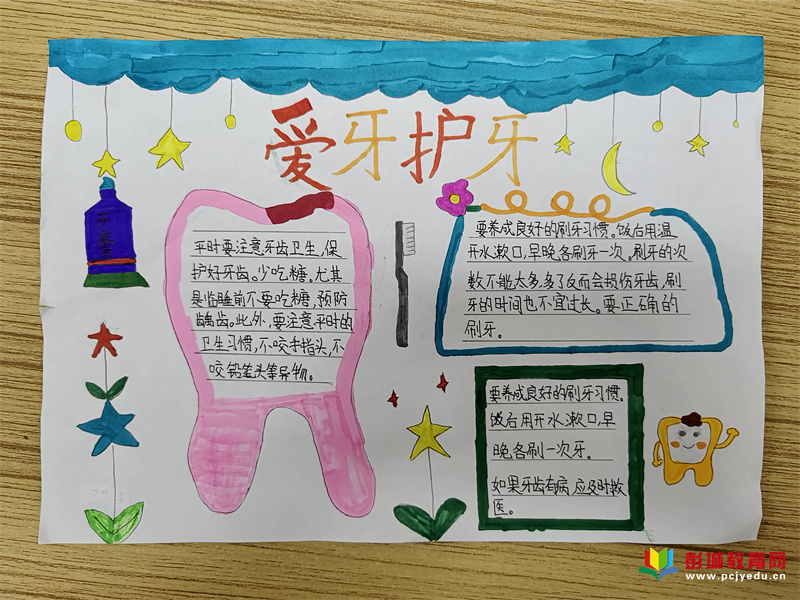 爱牙护牙
平时要注意牙齿卫生,保
护好牙齿。少吃糖。尤其
是临睡前不要吃糖,预防
龋齿。此外,要注意平时的
卫生习惯,不咬手指头,不
咬铅笔头等异物。
要养成良好的刷牙习惯。饭后用温
开水漱口,早晚各刷牙一次。刷牙的次
数不能太多,多了反而会损伤牙齿,刷
牙的时间也不宜过长。要正确的
刷牙。
要养成良好的刷牙习惯。
饭后用开水漱口,早
晚各刷一次牙。
如果牙齿有病,应及时救
医。
彭城教育网
www.pcjyedu.cn